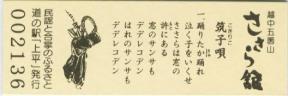 越中五箇山
ささら館
こきりこ
筑子唄
一踊りたか踊れ
泣く子をいくせ
ささらは窓の
許にある
窓のサンサも
デデレコデン
はれのサンサも
デデレコデン
民謡と合掌のふるさと
道の駅「上平」発行
002136